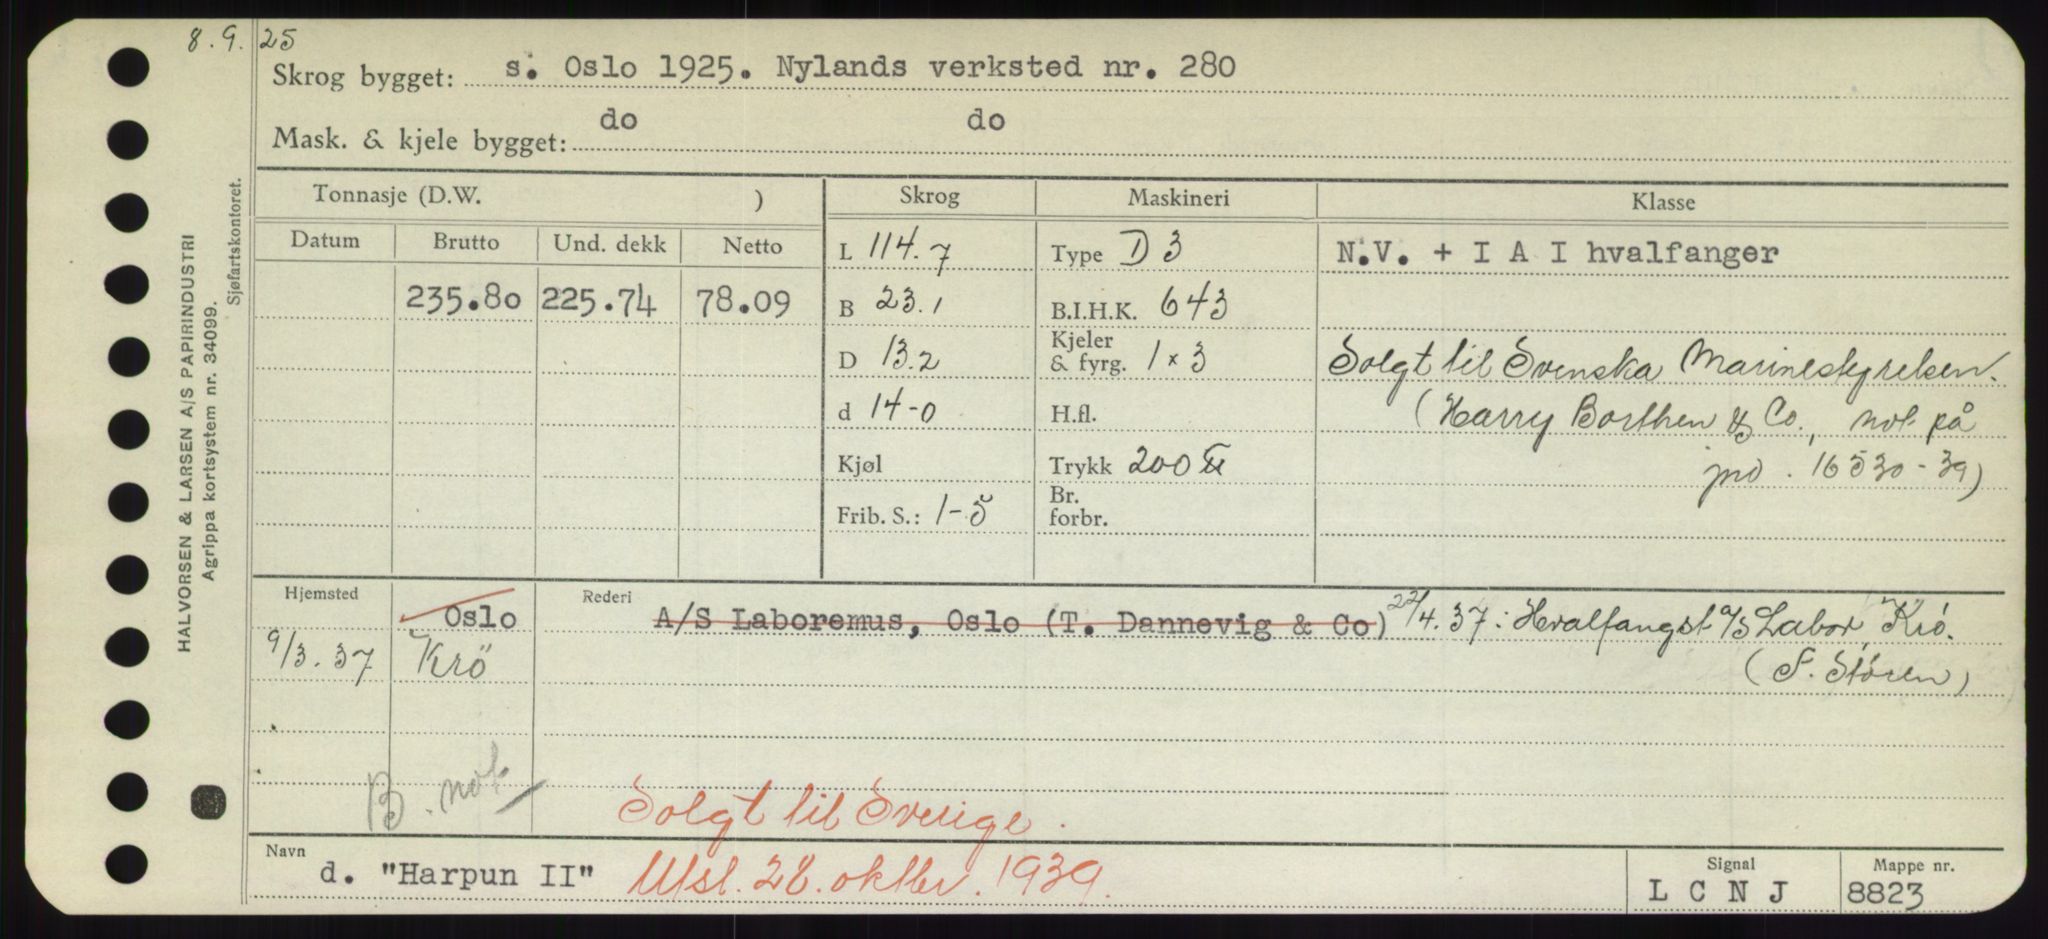 8.9.25
Skrog bygget: s. Oslo 1925. Nylands verksted nr. 280
Mask. & kjele bygget: do do
HALVORSEN & LARSEN A/S PAPIRINDUSTRI
Agrippa kortsystem nr. 34099.
Sjøfartskontoret.
Tonnasje (D.W. ) Skrog Maskineri Klasse
Datum Brutto Und. dekk Netto L 114.7 Type D 3 N.V. + I A I hvalfanger
235.80 225.74 78.09 B 23.1 B.I.H.K. 643
D 13.2 Kjeler & fyrg. 1 x 3 Solgt til Svenska Marinestyrelsen.
d 14-0 H.fl. (Harry Borthen & Co., not på
Kjøl Trykk 200 jnd. 16530-39)
Frib. S.: 1-5 Br. forbr.
Hjemsted Oslo Rederi A/S Laboremus, Oslo (T. Dannevig & Co) 22/4.37: Hvalfangst a/s Labor, Krö.
9/3.37 Krö (F. Støren)
B. not
Solgt til Sverige.
Navn d. "Harpun II" Utsl. 28. oktbr. 1939. Signal L C N J Mappe nr. 8823